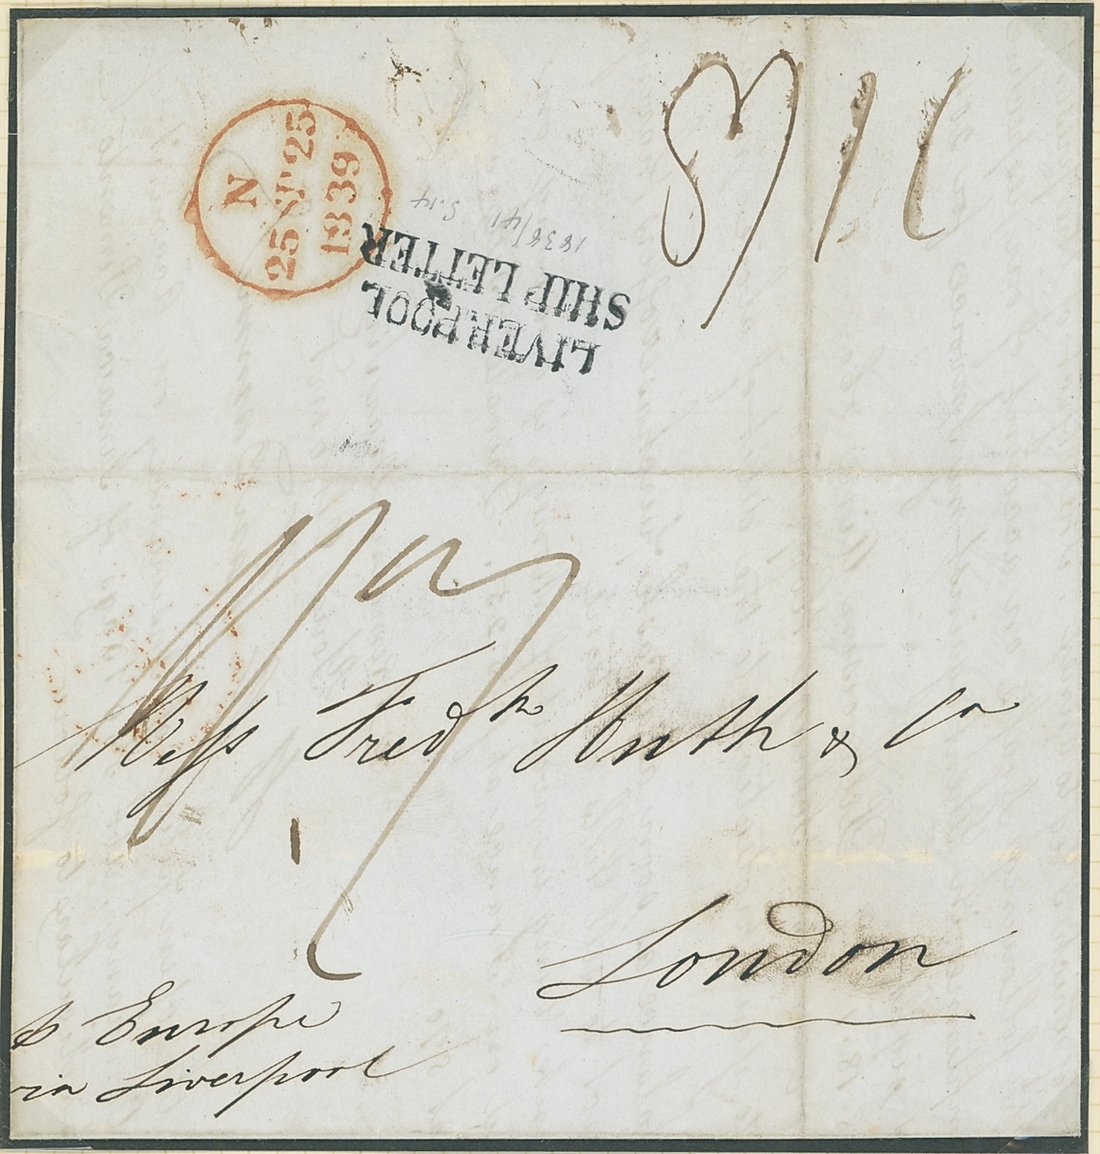 N
25 SP 25
1839
LIVERPOOL
SHIP LETTER
1838/41
S.14
Mess Fredk Huth & Co
London
p Europe
via Liverpool